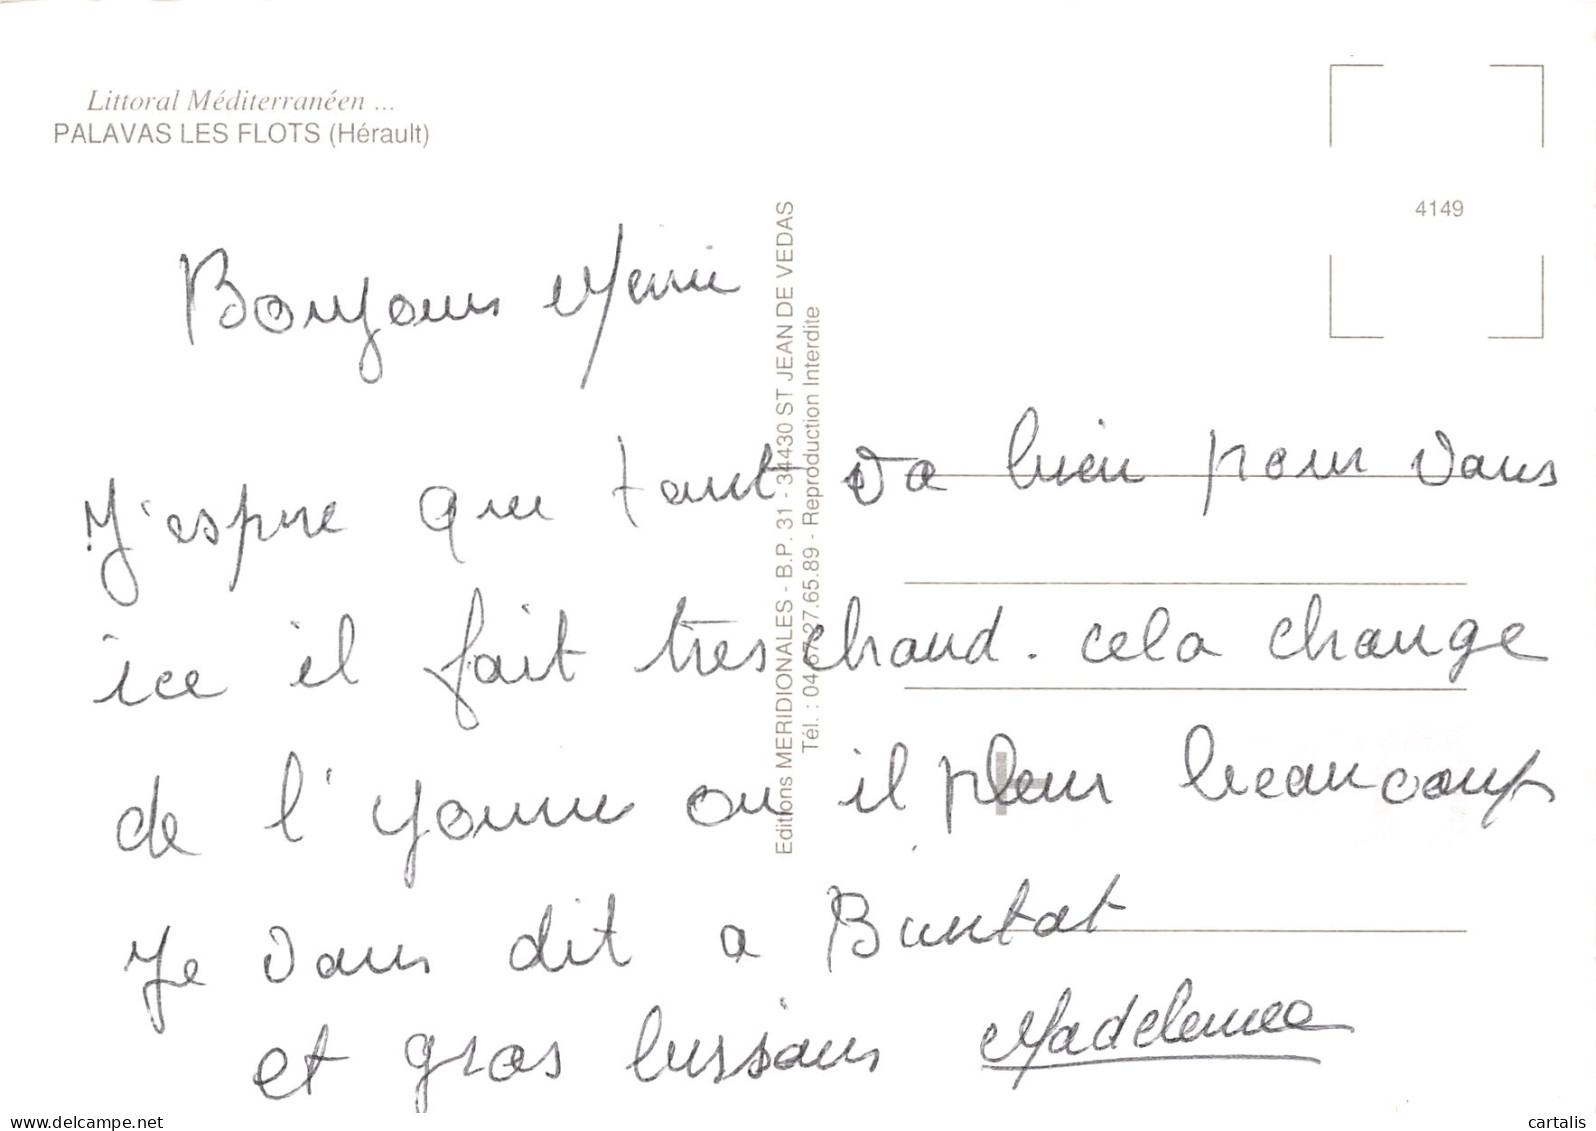 Littoral Méditerranéen ...
PALAVAS LES FLOTS (Hérault)
4149
Editions MERIDIONALES - B.P. 31 - 34430 ST JEAN DE VEDAS
Tél. : 04.67.27.65.89 - Reproduction Interdite
Bonjour
J'espère que tout va bien pour vous
ice il fait très chaud. cela change
de l'yonne ou il pleur beaucoup
Je vous dit a Bintat
et gros bissous Madeleinee
www.delcampe.net
cartalis